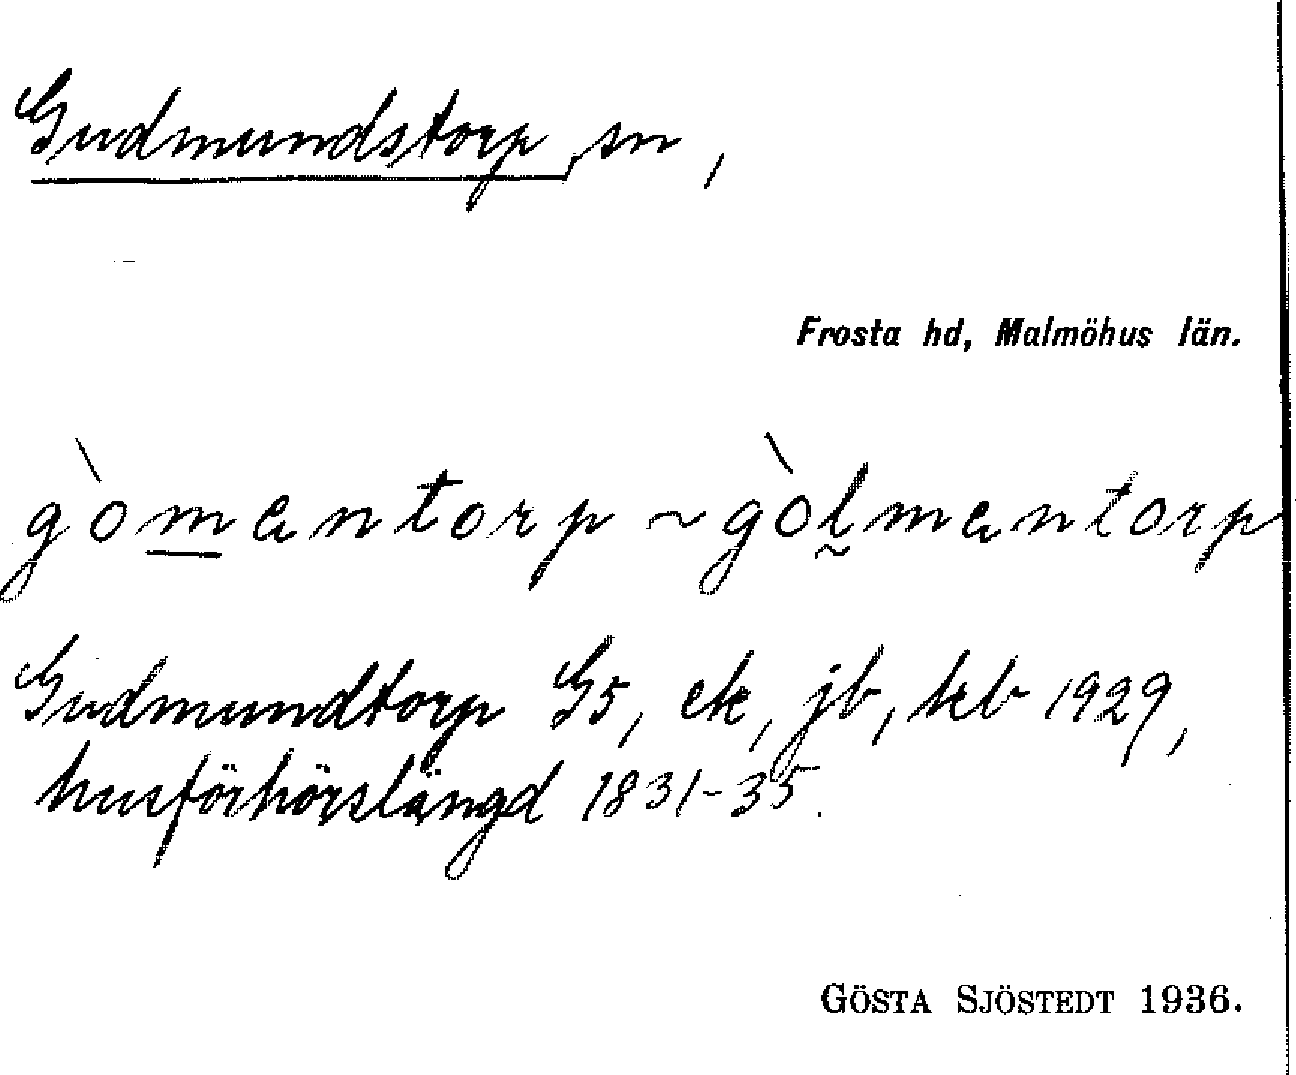 Gudmundstorp, sn,
Frosta hd, Malmöhus län.
gòmantorp ~ gòlmantorp
Gudmundtorp G5, ek, jb, kb 1929,
husförhörslängd 1831-35.
GÖSTA SJÖSTEDT 1936.